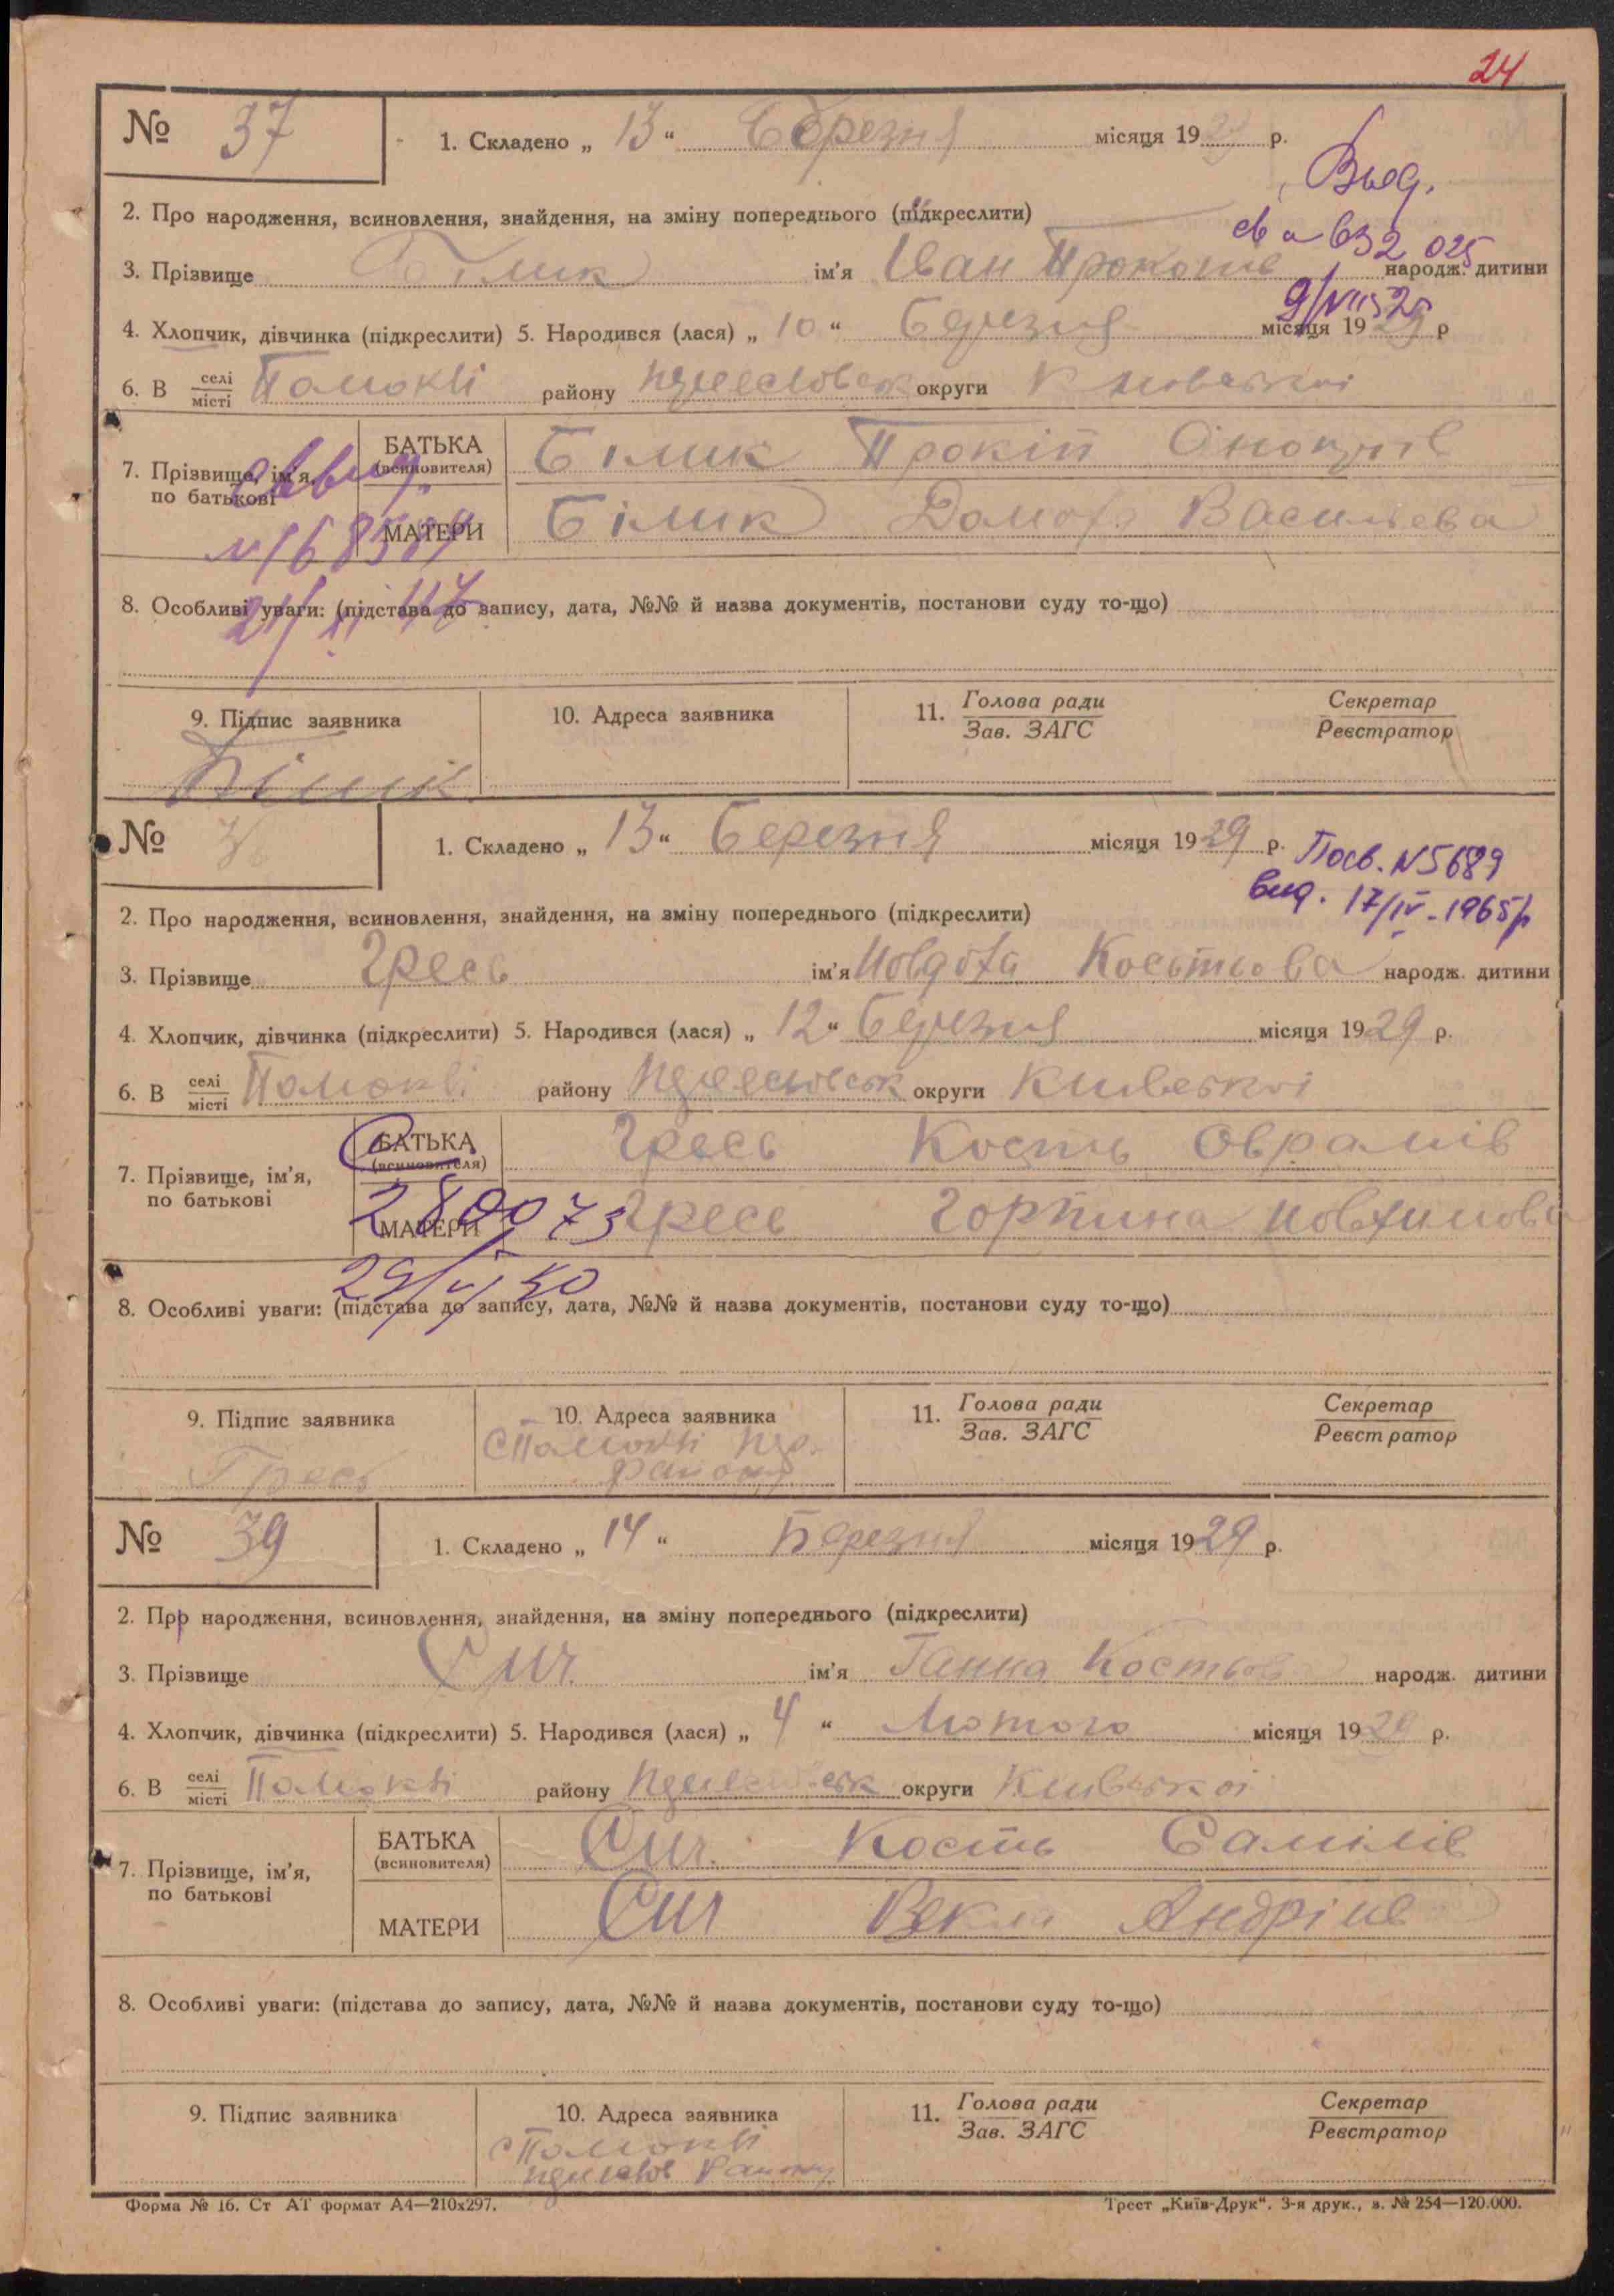 24
№ 37 1. Складено „ 13 “ Березня місяця 1929 р.
Выд.
2. Про народження, всиновлення, знайдення, на зміну попереднього (підкреслити)
св а 632 025
3. Прізвище Білик ім'я Іван Прокопів народж. дитини
4. Хлопчик, дівчинка (підкреслити) 5. Народився (лася) „ 10 “ Березня місяця 1929 р
6. В селі/місті Помоклі району округи Київської
7. Прізвище, ім'я, по батькові
БАТЬКА (всиновителя) Білик Прокіп
МАТЕРИ Білик Васильева
8. Особливі уваги: (підстава до запису, дата, №№ й назва документів, постанови суду то-що)
9. Підпис заявника 10. Адреса заявника 11. Голова ради/Зав. ЗАГС Секретар/Реєстратор
Білик
№ 1. Складено „ 13 “ Березня місяця 1929 р.
Посв. N5689
вид. 17/IV-1965р
2. Про народження, всиновлення, знайдення, на зміну попереднього (підкреслити)
3. Прізвище Гресь ім'я Костьова народж. дитини
4. Хлопчик, дівчинка (підкреслити) 5. Народився (лася) „ 12 “ Березня місяця 1929 р.
6. В селі/місті Помоклі району округи Київської
7. Прізвище, ім'я, по батькові
БАТЬКА (всиновителя) Гресь Кость Оврамів
МАТЕРИ Гресь Горпина Йовхимова
280073
8. Особливі уваги: (підстава до запису, дата, №№ й назва документів, постанови суду то-що)
9. Підпис заявника 10. Адреса заявника 11. Голова ради/Зав. ЗАГС Секретар/Реєстратор
С Помоклі
Гресь району
№ 39 1. Складено „ 14 “ Березня місяця 1929 р.
2. Про народження, всиновлення, знайдення, на зміну попереднього (підкреслити)
3. Прізвище Сич ім'я Ганна Костьова народж. дитини
4. Хлопчик, дівчинка (підкреслити) 5. Народився (лася) „ 4 “ Лютого місяця 1929 р.
6. В селі/місті Помоклі району округи Київської
7. Прізвище, ім'я, по батькові
БАТЬКА (всиновителя) Сич Кость
МАТЕРИ Сич Векла
8. Особливі уваги: (підстава до запису, дата, №№ й назва документів, постанови суду то-що)
9. Підпис заявника 10. Адреса заявника 11. Голова ради/Зав. ЗАГС Секретар/Реєстратор
С Помоклі
Району
Форма № 16. Ст АТ формат А4—210x297. Трест „Київ-Друк“. 3-я друк., з. № 254—120.000.